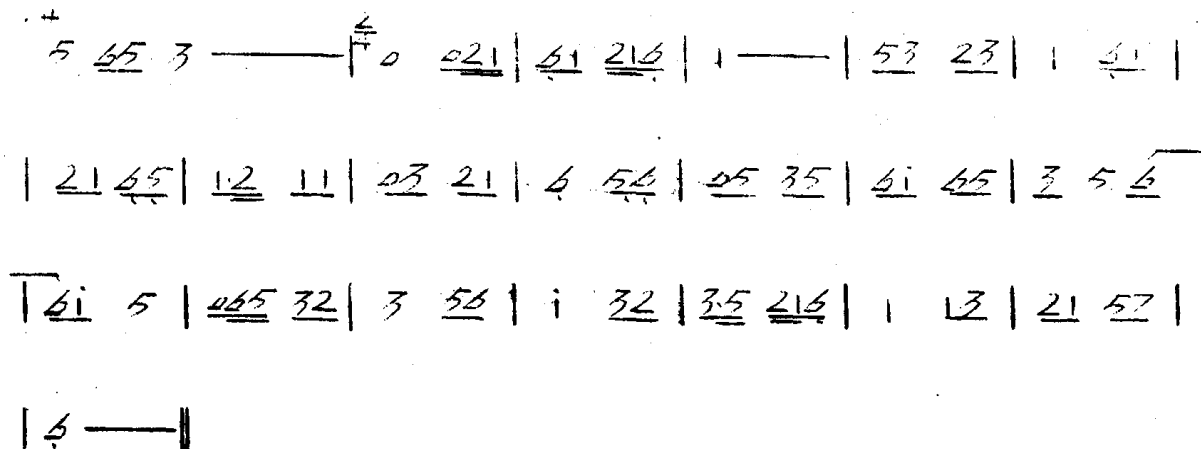 サ 5 65 3 ——— | 2/4 0 021 | 61 216 | 1 —— | 53 23 | 1 61 |
| 21 65 | 1·2 11 | 03 21 | 6 56 | 05 35 | 6i 65 | 3 5 6
| 6i 5 | 065 32 | 3 56 | i 32 | 3·5 216 | 1 13 | 21 57 |
| 6 —— ‖